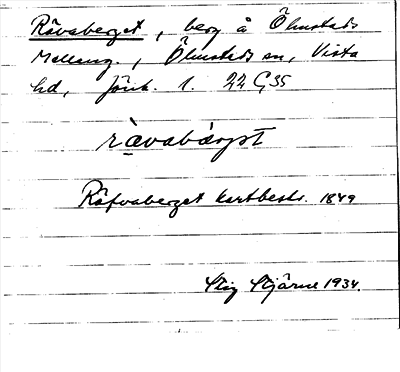 Rävaberget, berg å Ölmstads
Mellang., Ölmstads sn, Vista
hd, Jönk. l. 22 G 35
rävabärgət
Räfvaberget kartbeskr. 1849
Stig Stjärne 1934.